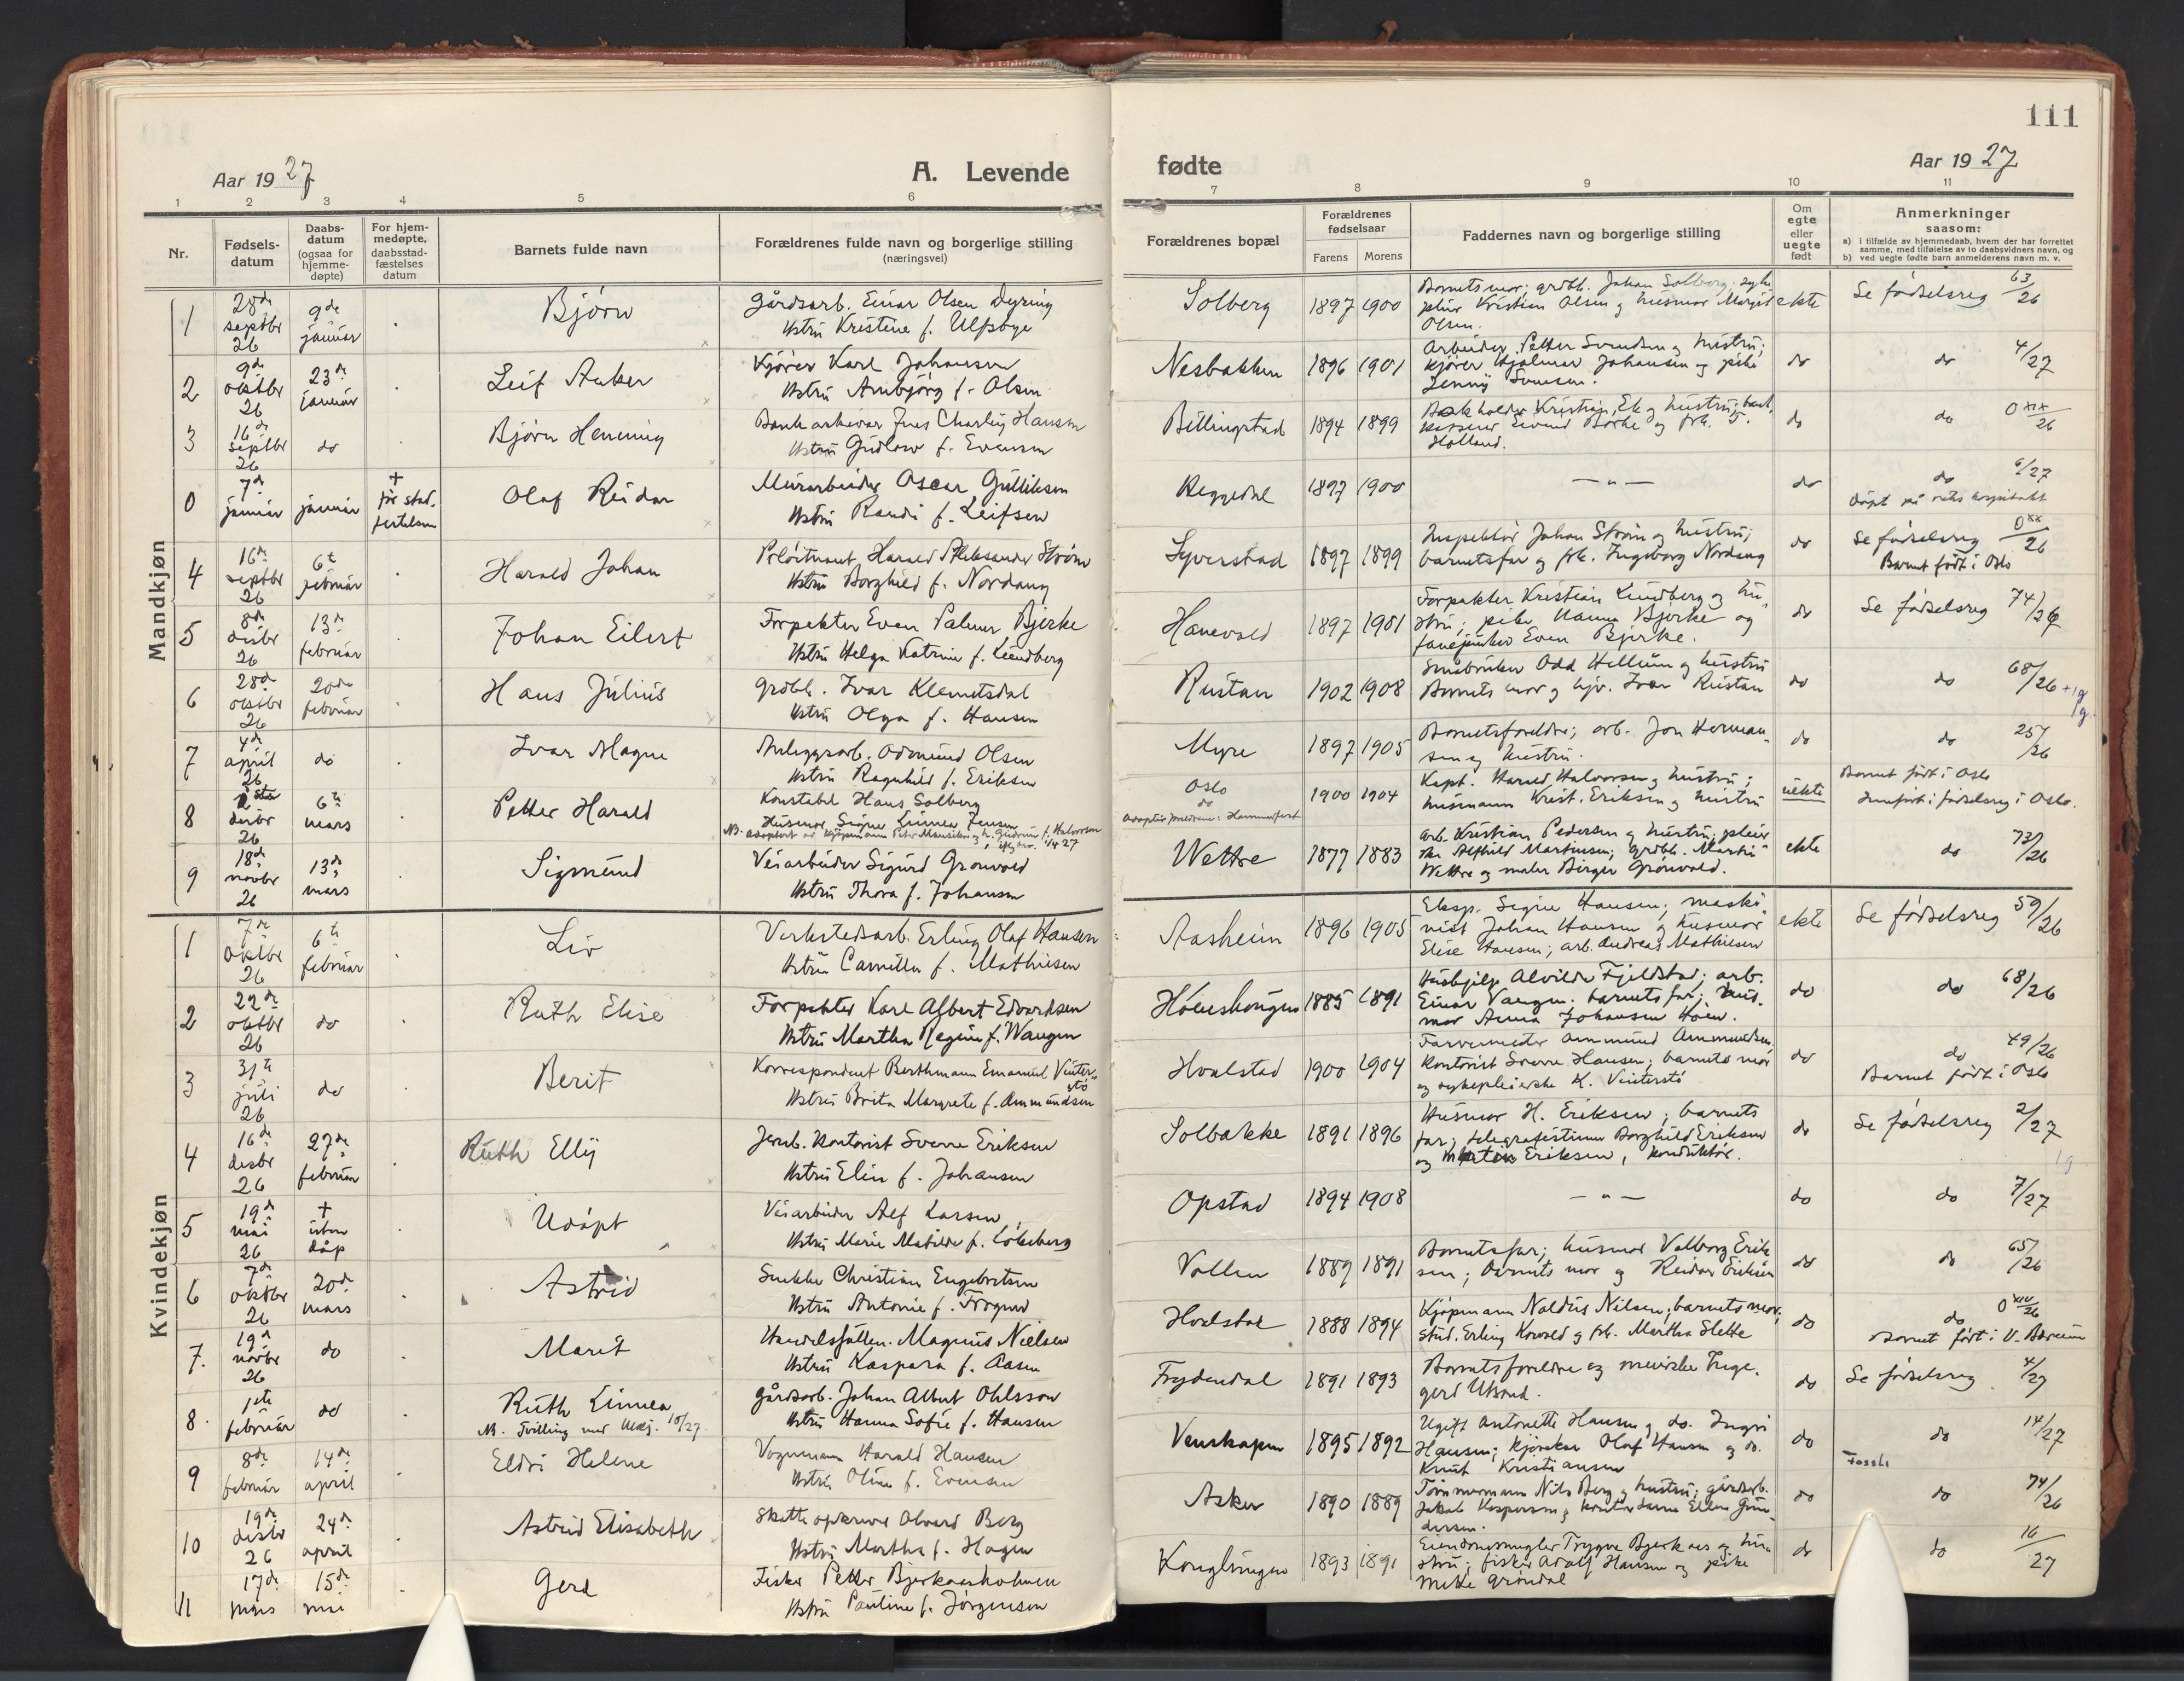 111
Aar 1927
A. Levende
fødte
Aar 1927
1 2 3 4 5 6 7 8 9 10 11
Nr.
Fødsels-
datum
Daabs-
datum
(ogsaa for
hjemme-
døpte)
For hjem-
medøpte,
daabsstad-
fæstelses
datum
Barnets fulde navn
Forældrenes fulde navn og borgerlige stilling
(næringsvei)
Forældrenes bopæl
Forældrenes
fødselsaar
Farens Morens
Faddernes navn og borgerlige stilling
Om
egte
eller
uegte
født
Anmerkninger
saasom:
a) i tilfælde av hjemmedaab, hvem der har forrettet
samme, med tilføielse av to daabsvidners navn, og
b) ved uegte fødte barn anmelderens navn m. v.
Mandkjøn
1 28de septbr 26 9de januar Bjørn
Gårdsarb. Einar Olsen Dyring
Hstru Kristine f. Ulfsbye
Solberg 1897 1900
Barnets mor; grdbr. Johan Solberg;
Kristian Olsen og husmor Margit
Olsen.
ekte Se fødselsreg 63/26
2 9de oktbr 26 23de januar Leif Anker
Kjører Karl Johansen
Hstru Arnbjørg f. Olsen
Nesbakken 1896 1901
Arbeider Petter Svendsen og hustru;
kjører Hjalmar Johansen og pike
Jenny Svensen.
do do 4/27
3 16de septbr 26 do Bjørn Henning
Bankarkivar Jens Charley Hansen
Hstru Gudlow f. Evensen
Billingstad 1894 1899
Kristian Ek og hustru; bank
kasserer Eivind Borke og frk. S.
Holland.
do do 0 XIX/26
0 7de januar januar + før stad.
festelsen Olaf Reidar
Murarbeider Oscar Gulliksen
Hstru Randi f. Leifsen
Heggedal 1897 1900 — " — do do 6/27
Døpt på
4 16de septbr 26 6te februar Harald Johan
Harald Aleksander Strøm
Hstru Borghild f. Nordang
Syverstad 1897 1899
Inspektør Johan Strøm og hustru;
barnets far og frk. Ingeborg Nordang
do Se fødselsreg 0 XX/26
Barnet født i Oslo
5 8de desbr 26 13de februar Johan Eilert
Forpakter Even Palmer Bjerke
Hstru Helga Katrine f. Lundberg
Hanevold 1897 1901
Forpakter Kristian Lundberg og hu-
stru; pike Hanna Bjerke og
fanejunker Even Bjerke.
do Se fødselsreg 74/26
6 28de oktbr 26 20de februar Hans Julius
Grdbr. Ivar Klemetsdal
Hstru Olga f. Hansen
Rustan 1902 1908
Småbruker Odd Hellum og hustru
Barnets mor og hjv. Ivar Rustan
do do 68/26
7 4de april 26 do Ivar Magne
Anleggsarb. Odmund Olsen
Hstru Ragnhild f. Eriksen
Myre 1897 1905
Barnets foreldre; arb. Jon Herman-
sen og hustru.
do do 25/26
8 desbr 26 6te mars Petter Harald
Konstabel Hans Solberg
Husmor Signe Linnea Jensen
Oslo
do
Adoptivforeldrene: Hammerfest
1900 1904
Kapt. Harald Halvorsen og hustru;
husmann Krist. Eriksen og hustru
uekte Barnet født i Oslo
Innført i fødselsreg i Oslo.
9 18de novbr 26 13de mars Sigmund
Veiarbeider Sigurd Grønvold
Hstru Thora f. Johansen
Wettre 1877 1883
Arb. Kristian Pedersen og hustru; pleier
ske Alfhild Martinsen; grdbr. Martin
Wettre og maler Birger Grønvold.
ekte do 73/26
Kvindekjøn
1 7de oktbr 26 6te februar Liv
Verkstedsarb. Erling Olaf Hansen
Hstru Camilla f. Mathisen
Aasheim 1896 1905
Eksp. Signe Hansen; maski-
nist Johan Hansen og husmor
Elise Hansen; arb. Andreas Mathiesen
ekte Se fødselsreg 59/26
2 22de oktbr 26 do Ruth Elise
Forpakter Karl Albert Edvardsen
Hstru Martha Regine f. Waugen
1885 1891
Hushjelp Alvilde Fjeldstad; arb.
Einar Vaugen; barnets far; hus.
mor Anna Johansen Hoen.
do do 68/26
3 31te juli 26 do Berit
Korrespondent Berthmann Emanuel Vinter-
stø
Hstru Brita Margrete f. Ammundsen
Hvalstad 1900 1904
Farvemester Ammund Ammundsen
Kontorist Sverre Hansen; barnets mor
og sykepleierske K. Vinterstø
do do 49/26
Barnet født i Oslo
4 16de desbr 26 27de februar Ruth Elly
Jernb. kontorist Sverre Eriksen
Hstru Elin f. Johansen
Solbakke 1891 1896
Husmor H. Eriksen; barnets
far; telegrafistinne Borghild Eriksen
og Morten Eriksen, konduktør.
do Se fødselsreg 2/27
5 19de mai 26 + uten dåp Udøpt
Veiarbeider Alf Larsen
Hstru Marie Matilde f. Løkeberg
Opstad 1894 1908 — " — do do 7/27
6 7de oktbr 26 20de mars Astrid
Snekker Christian Engebretsen
Hstru Antonie f. Frogner
Vollen 1889 1891
Barnets far; husmor Valborg Erik
sen; barnets mor og Reidar Eriksen
do do 65/26
7. 19de novbr 26 do Marit
Handelsfullm. Magnus Nielsen
Hstru Kaspara f. Aasen
Hvalstad 1888 1894
Kjøpmann Naldus Nilsen; barnets mor;
stud. Erling Kowold og frk. Martha Slette
do do 0 XIV/26
Barnet født i V. Bærum
8. 1ste februar do Ruth Linnea
NB. Tvilling med 10/27.
Gårdsarb. Johan Albert Ohlsson
Hstru Hanna Sofie f. Hansen
Frydendal 1891 1893
Barnets foreldre og meierske Inge-
gerd
do Se fødselsreg 4/27
9 8de februar 14de april Eldri Helene
Vognmann Harald Hansen
Hstru Oline f. Evensen
Venskapen 1895 1892
Ugift Antonette Hansen og do. Ingri
Hansen; kjørekar Olaf Hansen og do.
Knut Kristiansen
do do 14/27
10 19de desbr 26 24de april Astrid Elisabeth
Skatteopkrever Olvard Berg
Hstru Martha f. Hagen
Asker 1890 1889
Tømmermann Nils Berg og hustru; gårdarb.
Jakob Kaspersen og kontordame Ellen Gun-
dersen.
do do 74/26
11 17de mars 15de mai Gerd
Fisker Petter Bjerkaasholmen
Hstru Pauline f. Jørgensen
Konglungen 1893 1891
Eiendomsmegler Trygve Bjerkaas og hu-
stru; fisker Adolf Hansen og pike
Mette Grøndal
do do 16/27